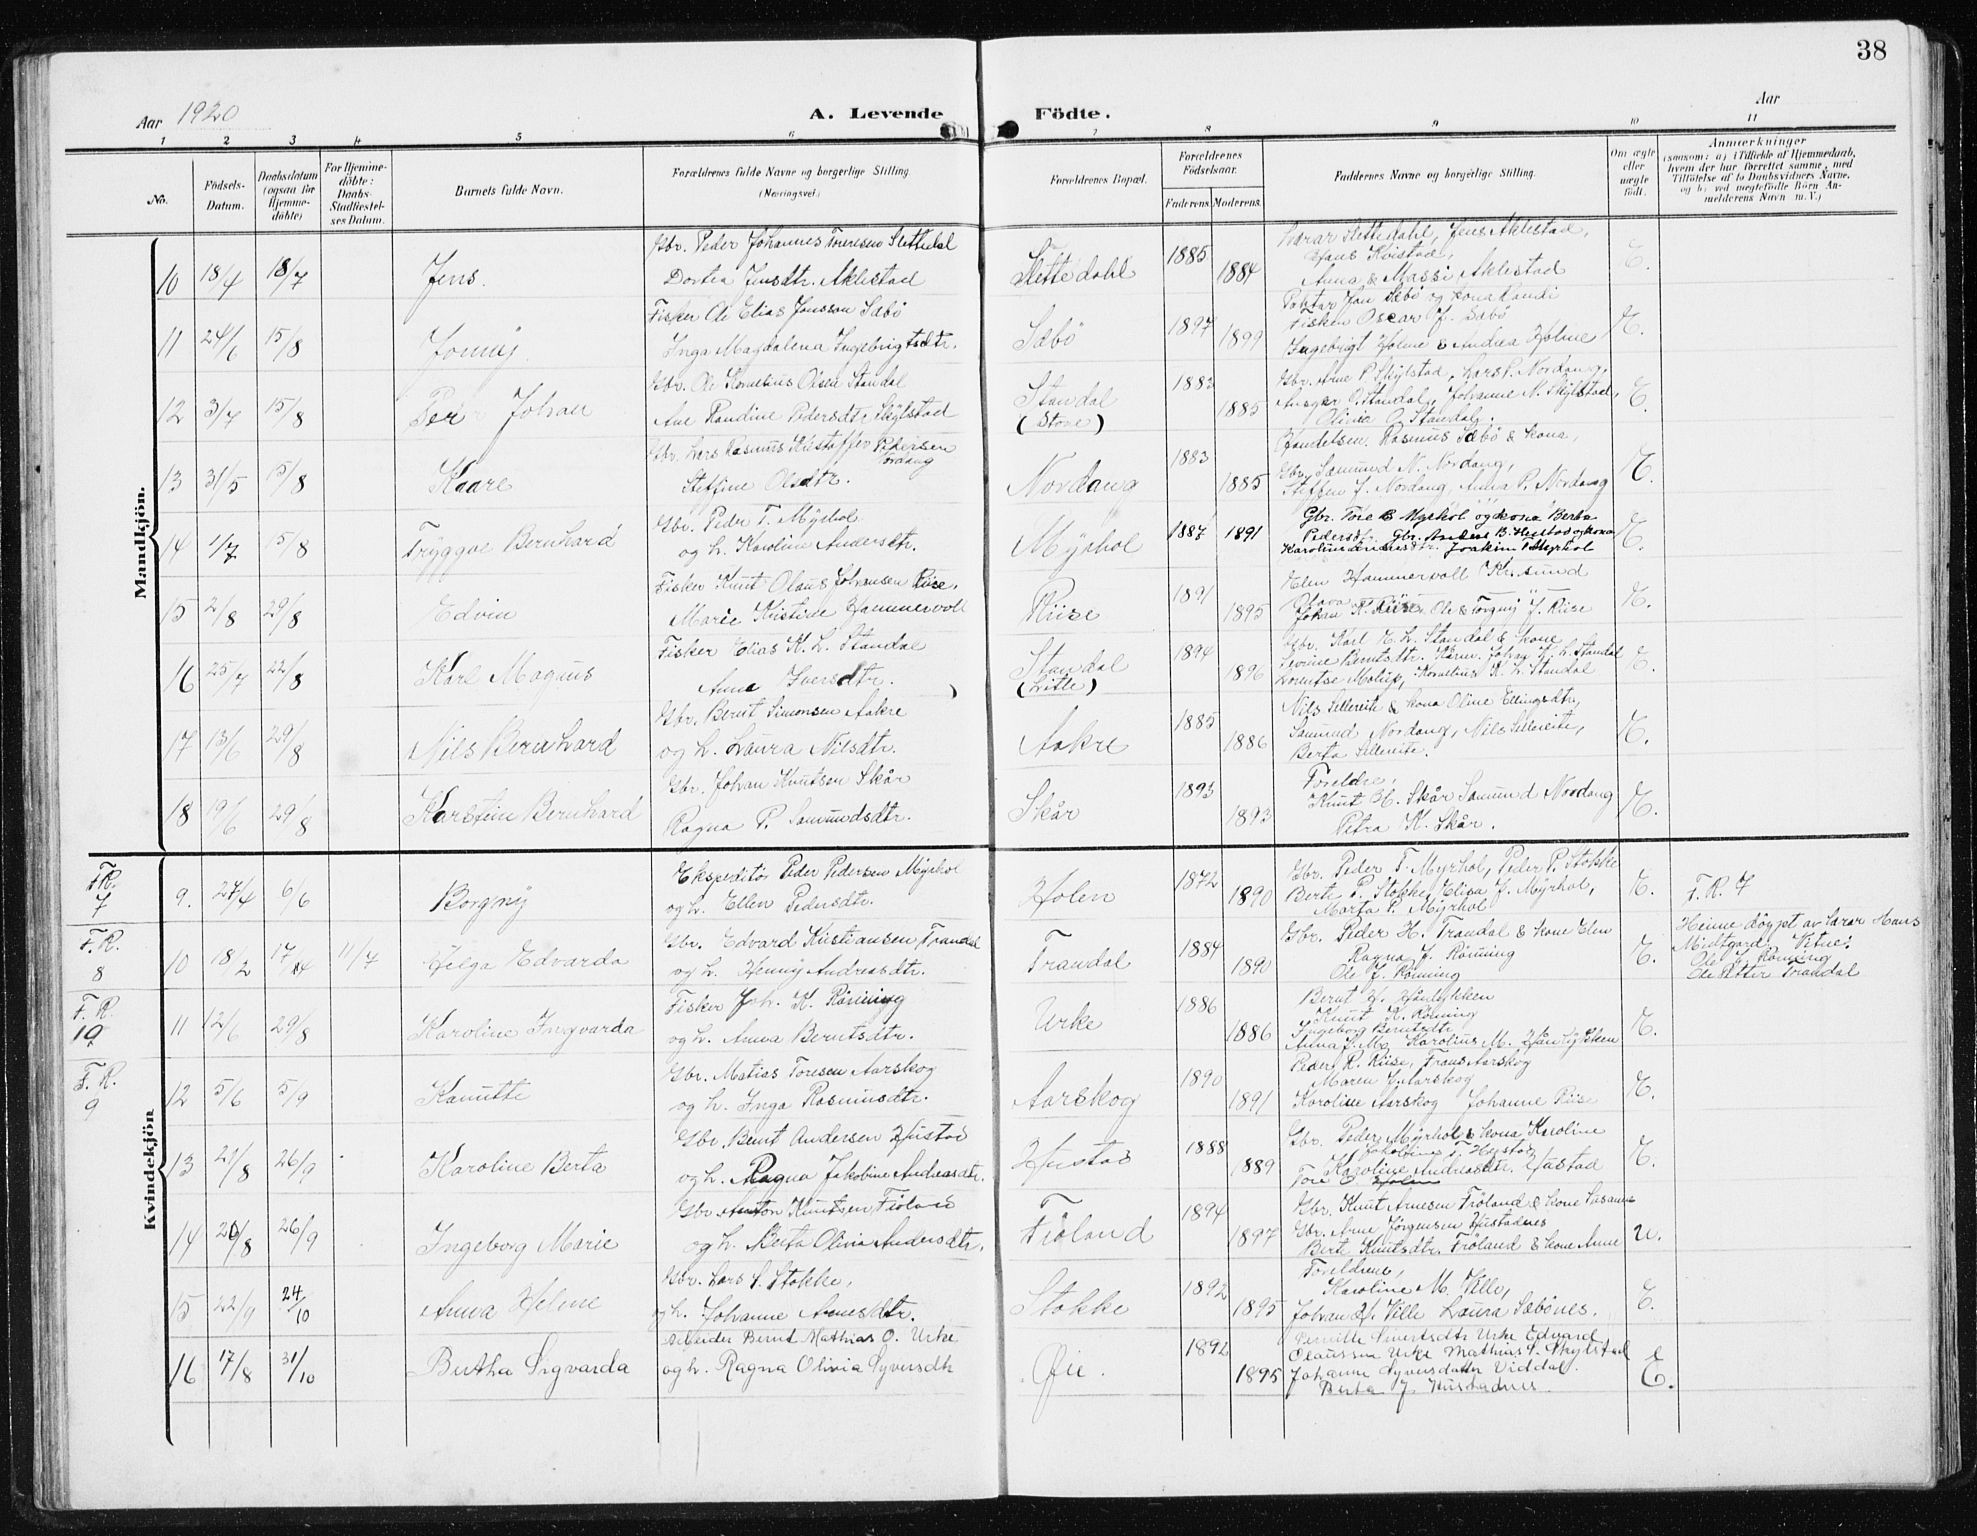 38
Aar 1920
A. Levende Födte.
Aar
1 2 3 4 5 6 7 8 9 10 11
No.
Födsels-Datum.
Daabsdatum (ogsaa for Hjemmedöbte)
For Hjemmedöbte: Daabs-Stadfæstelses Datum.
Barnets fulde Navn.
Forældrenes fulde Navne og borgerlige Stilling (Næringsvei.)
Forældrenes Bopæl.
Forældrenes Födselsaar.
Faderens. Moderens.
Faddernes Navne og borgerlige Stilling.
Om ægte eller uægte födt.
Anmærkninger
(saasom: a) i Tilfælde af Hjemmedaab,
hvem der har forrettet samme, med
Tilföielse af to Daabsvidners Navne,
og b) ved uægtefödte Börn An-
melderens Navn m. V.)
Mandkjön.
10 18/4 18/7 Jens.
Gbr. Peder Johannes Toresen Slettedal
Dortea Jensdtr. Aklestad
Slettedahl 1885 1884
Lærar Slettedahl, Jens Aklestad,
Hans Kvistad,
Anna & Massi Aklestad
E.
11 24/6 15/8
Fisker Ole Elias Jonsson Sæbö
Inga Magdalena Ingebrigtsdtr.
Sæbö 1897 1899
Jon Sæbö og kona Randi
Fisker Oscar J. Sæbö
Ingebrigt Holme & Andrea Holme
E.
12 3/7 15/8 Per Johan
Gbr. Ole Kornelius Olsen Standal
Ane Randine Pedersdtr. Skylstad
Standal (Store) 1883 1885
Gbr. Arne P. Skylstad, Lars P. Nordang,
Ansgar O. Standal, Johanne N. Skylstad,
Olivia O. Standal.
E.
13 31/5 15/8 Kaare
Gbr. Lars Rasmus Kristoffer Petersen Nordang
Steffine Olsdtr.
Nordang 1883 1885
Handelsm. Rasmus Sæbö & kona,
Gbr. Samund N. Nordang,
Steffen J. Nordang, Anna P. Nordang
E.
14 1/7 15/8 Tryggve Bernhard
Gbr. Peder T. Myrhol
og h. Karoline Andersdtr.
Myrhol 1887 1891
Gbr. Tore E Myrhol og kona Berte
Pedersdt. Gbr. Anders B. Hustad og kona
Karoline Andersdtr. Joakim Myrhol
E.
15 2/8 29/8 Edvin
Fisker Knut Olaus Johansen Riise,
Marie Kristine Hammervoll
Riise 1891 1895
Elen Hammervoll Kr.sund
Olava
Johan K. Riise, Ole & Torgny J. Riise
E.
16 25/7 22/8 Karl Magnus
Fisker Elias K. L. Standal
Anna Iversdtr.
Standal (Litle) 1894 1896
Gbr. Karl E. L. Standal & kone
Severine Berntsdtr. Johan K. L. Standal
Lorentse Molup, Kornelius K. L. Standal
E.
17 13/6 29/8 Nils Bernhard
Gbr. Bernt Simonsen Aakre
og h. Laura Nilsdtr.
Aakre 1885 1886
Nils Sellereite & kona Oline Ellingsdtr,
Samund Nordang, Nils Sellereite,
Berta Sellereite.
E.
18 19/6 29/8 Karstein Bernhard
Gbr. Johan Knutsen Skår
Ragna P. Samundsdtr.
Skår 1893 1893
Foreldre,
Knut H. Skår Samund Nordang
Petra K. Skår.
E.
Kvindekjön
F.R. 7 9. 27/4 6/6 Borgny
Ekspeditör Peder Pedersen Myrhol
og h. Ellen Pedersdtr.
Holen 1872 1890
Gbr. Peder T. Myrhol, Peder P. Stokke
Berte P. Stokke, Elisa J. Myrhol,
Marta P. Myrhol
E. F.R. 7
F.R. 8 10 18/2 17/4 11/7 Helga Edvarda
Gbr. Edvard Kristiansen Trandal
og h. Henny Andreasdtr.
Trandal 1884 1890
Gbr. Peder H. Trandal & kone Elen
Ragna J. Rönning
Ole J. Rönning
E.
Heime döypt av lærar Hans
Midtgard. Vitne:
Ole J. Rönning
Ole Petter Trandal
F.R. 10 11 12/6 29/8 Karoline Ingvarda
Fisker Joh. K. Rönning
og h. Anna Berntsdtr.
Urke 1886 1886
Bernt H. Hånlykken
Knut K. Rönning
Ingeborg Berntsdtr
Anna J. M. Karolius M. Hånlykken
E.
F.R. 9 12 5/6 5/9 Kamitte
Gbr. Matias Toresen Aarskog
og h. Inga Rasmusdtr.
Aarskog 1890 1891
Peder R. Riise, Frans Aarskog
Maren J. Aarskog
Karoline Aarskog Johanne Riise
E.
13 21/8 26/9 Karoline Berta
Gbr. Bernt Andersen Hustad
og h. Ragna Jakobine Andreasdtr.
Hustad 1888 1889
Gbr. Peder Myrhol & kona Karoline
Jakobine T. Hustad
Karoline Andreasdtr. Hustad
Tore E. Holen
E.
14 20/8 26/9 Ingeborg Marie
Gbr Anton Knutsen Fröland
og h. Berta Olivia Andersdtr.
Fröland 1894 1897
Gbr. Knut Arnesen Fröland & kone Susanne
Gbr. Arne Jörgensen Hustadnes
Bert Knutsdtr. Fröland & kone Anne
U.
15 22/9 24/10 Anna Helene
Gbr. Lars S. Stokke,
og h. Johanne Arnesdtr.
Stokke 1892 1895
Foreldrene,
Karoline M. Ville,
Johan H. Ville Laura Sæbönes.
E.
16 17/8 31/10 Bertha Sigvarda
Bernt Mathias O. Urke
og h. Ragna Olivia Syversdtr
Øie. 1892 1895
Pernille Sivertsdtr Urke Edvard
Olaussen Urke Mathias S. Skylstad
Johanne Syversdatter Viddal.
Berta J. Hustadnes.
E.